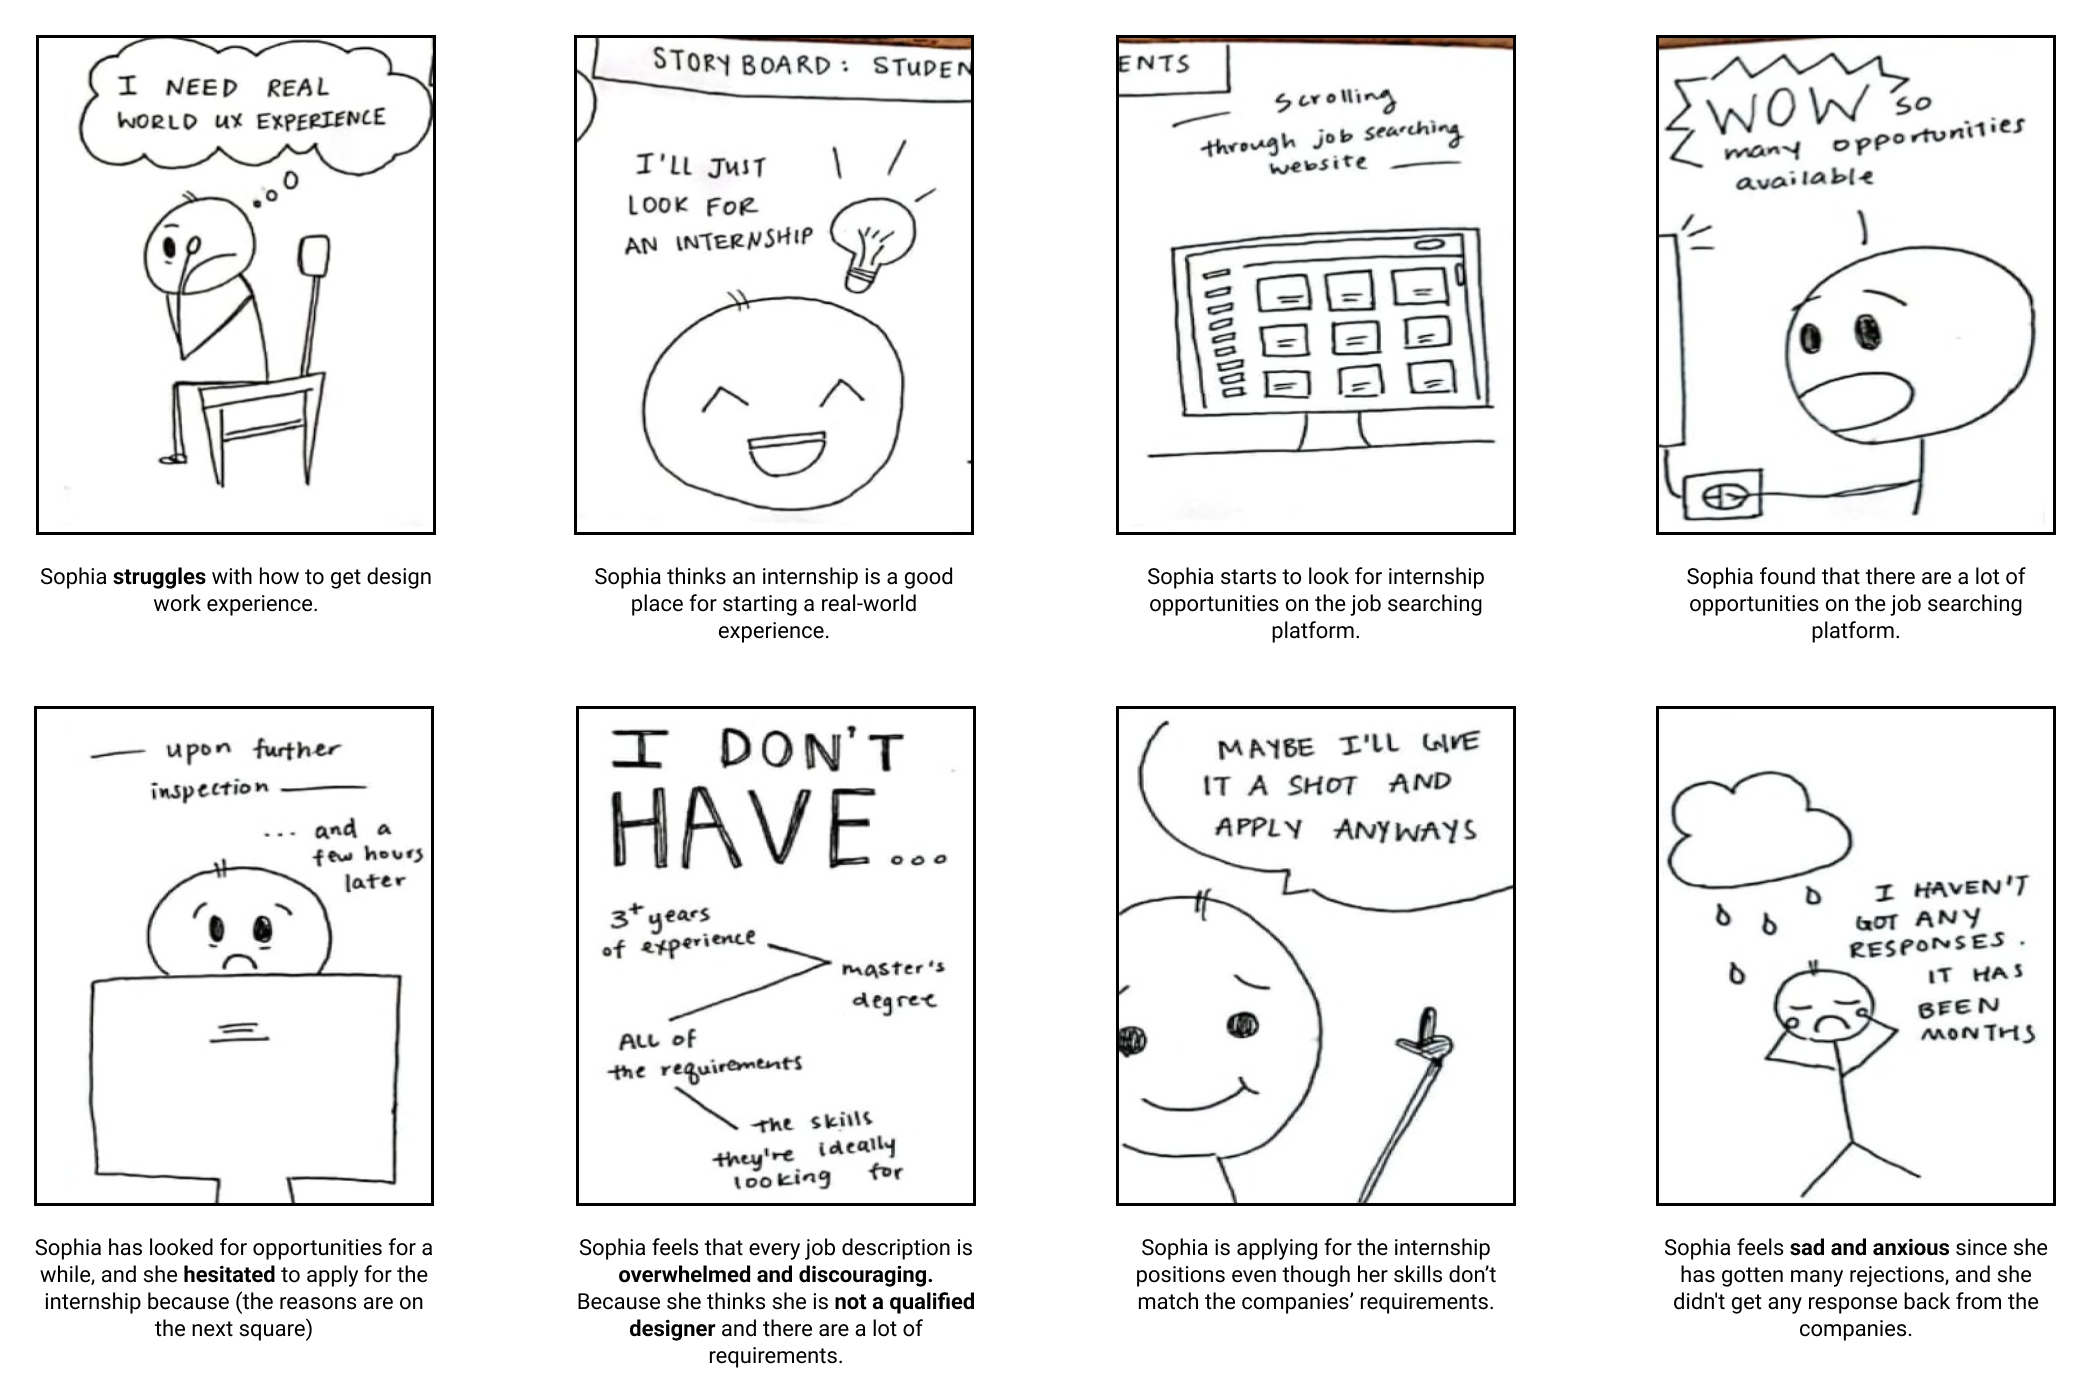 I NEED REAL
WORLD UX EXPERIENCE
Sophia struggles with how to get design
work experience.
STORYBOARD: STUDEN
I'LL JUST
LOOK FOR
AN INTERNSHIP
Sophia thinks an internship is a good
place for starting a real-world
experience.
ENTS
Scrolling
through job searching
website
Sophia starts to look for internship
opportunities on the job searching
platform.
WOW so
many opportunities
available
Sophia found that there are a lot of
opportunities on the job searching
platform.
upon further
inspection
... and a
few hours
later
Sophia has looked for opportunities for a
while, and she hesitated to apply for the
internship because (the reasons are on
the next square)
I DON'T
HAVE...
3+ years
of experience
master's
degree
ALL of
the requirements
the skills
they're ideally
looking for
Sophia feels that every job description is
overwhelmed and discouraging.
Because she thinks she is not a qualified
designer and there are a lot of
requirements.
MAYBE I'LL GIVE
IT A SHOT AND
APPLY ANYWAYS
Sophia is applying for the internship
positions even though her skills don’t
match the companies’ requirements.
I HAVEN'T
GOT ANY
RESPONSES.
IT HAS
BEEN
MONTHS
Sophia feels sad and anxious since she
has gotten many rejections, and she
didn't get any response back from the
companies.